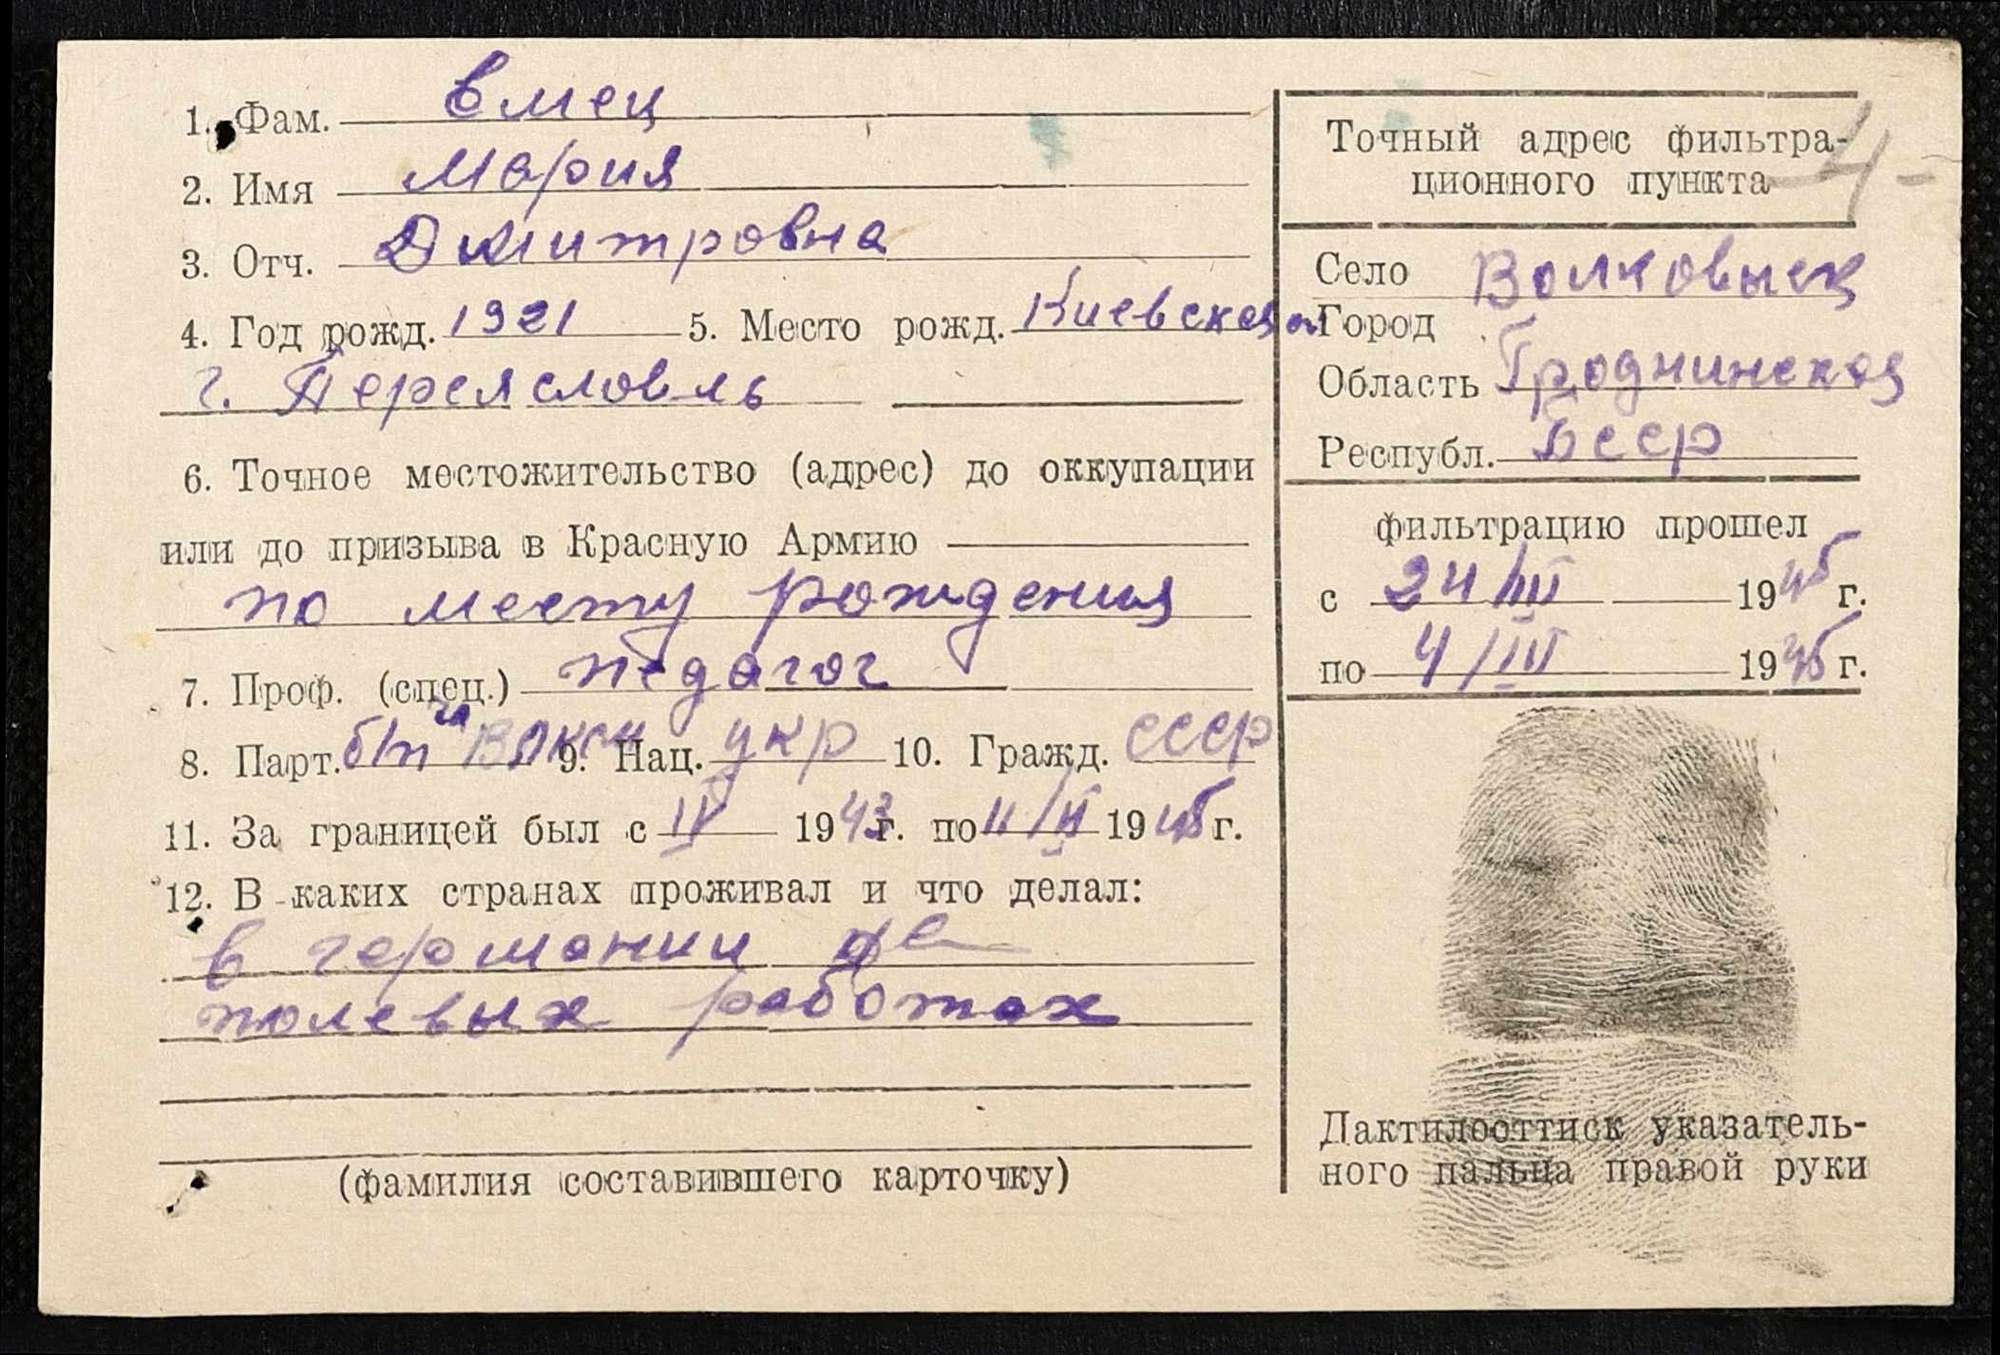 1. Фам. Емец
2. Имя Мария
3. Отч. Дмитровна
4. Год рожд. 1921 5. Место рожд. Киевская
г. Переясловль
6. Точное местожительство (адрес) до оккупации
или до призыва в Красную Армию
по месту рождения
7. Проф. (спец.) педагог
8. Парт. б/п ВЛКСМ 9. Нац. укр 10. Гражд. СССР
11. За границей был с IV 1943 г. по II 1945 г.
12. В каких странах проживал и что делал:
в германии
полевых работах
(фамилия составившего карточку)
Точный адрес фильтра-
ционного пункта
4-
Село Волковыск
Город
Область Гроднинская
Республ. БССР
фильтрацию прошел
с 24/III 1945 г.
по 4/III 1945 г.
Дактилооттиск указатель-
ного пальца правой руки